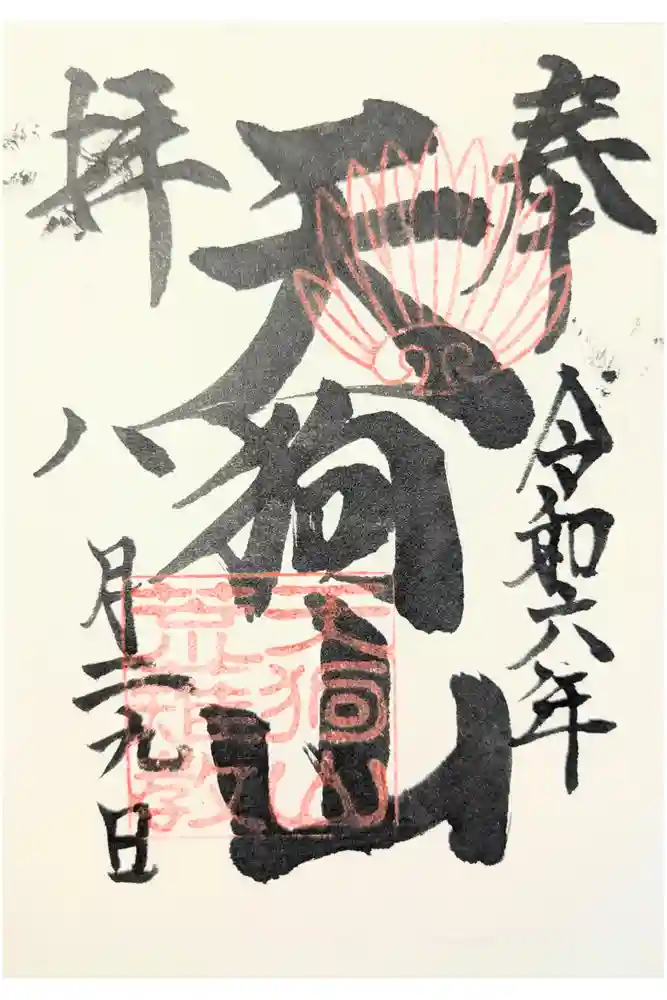 奉
令和六年
天狗山
拝
八月二九日
天狗山